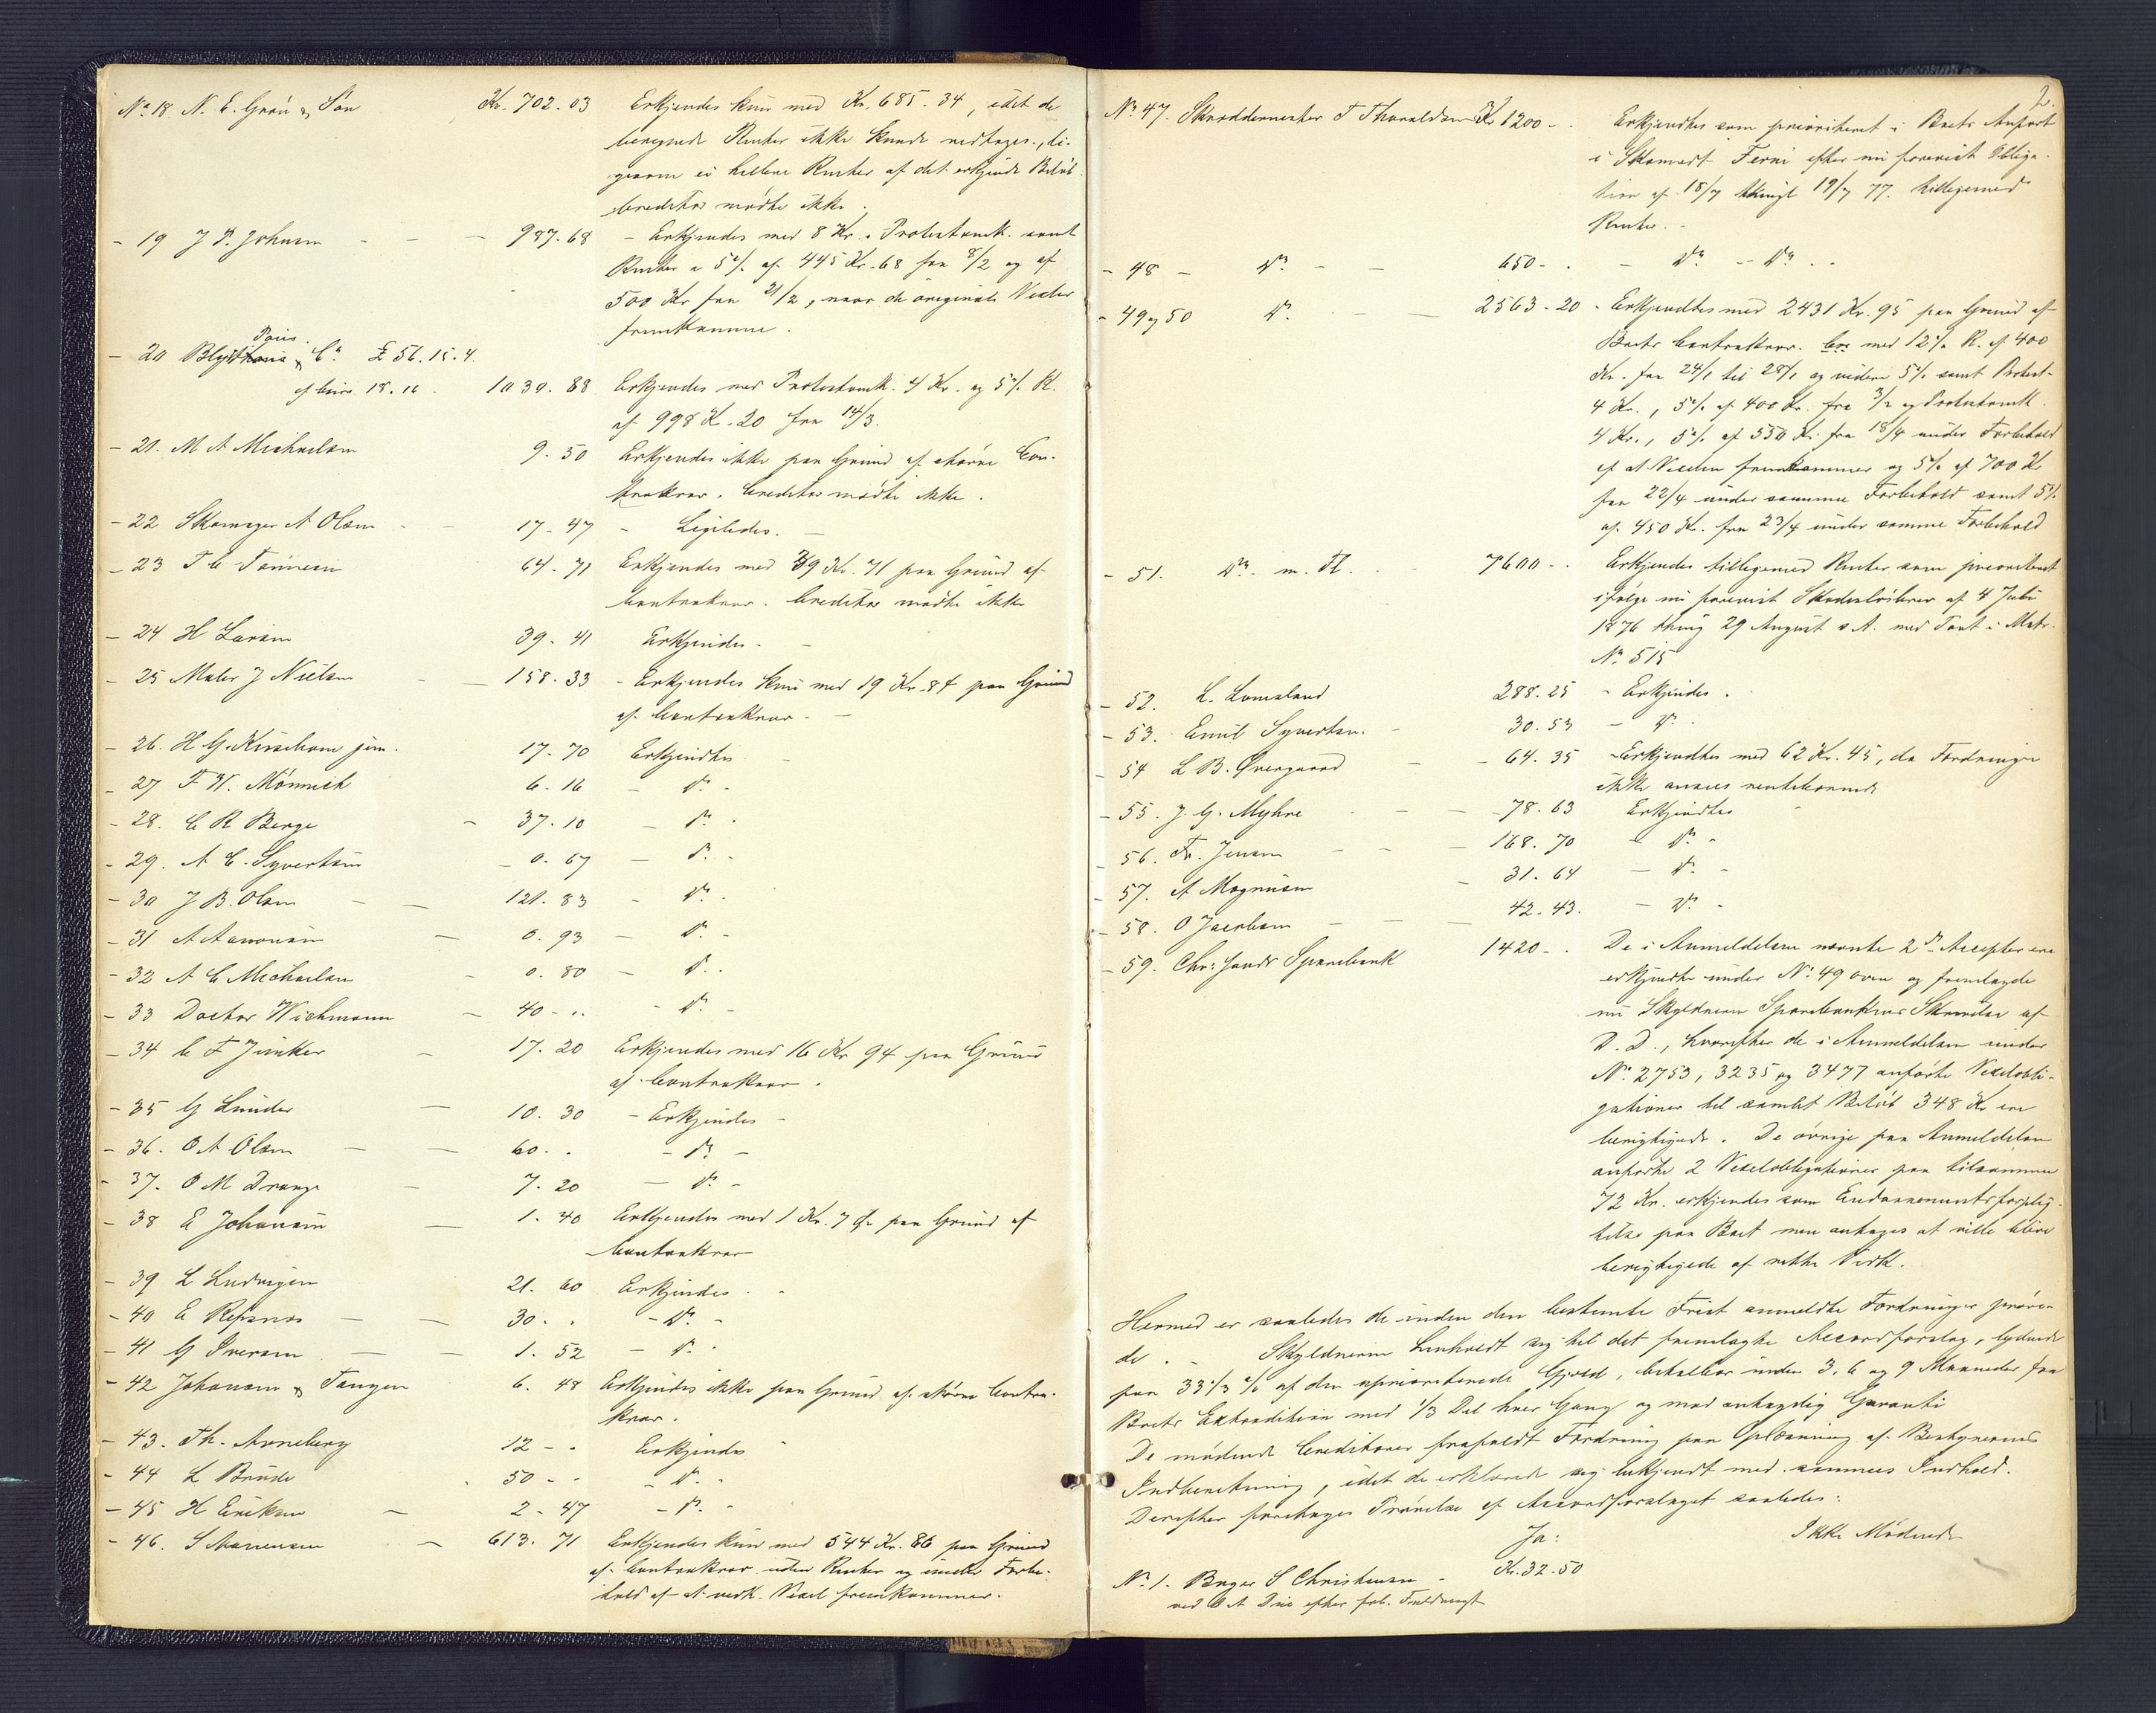 No 18. N. E. Grøn & Søn Kr. 702.03 Erkjendes kun med Kr. 685.34, idet de
beregnede Renter ikke kunde medtages, li-
gesom ei heller Renter af det erkjendte Beløb.
Creditor mødte ikke.
- 19 J P. Johnsen - - - 987.68 - Erkjendes med 8 Kr. i Protestomk. samt
Renter a 5% af 445 Kr. 68 fra 8/2 og af
500 Kr fra 21/2, naar de originale Vexler
fremkomme.
- 20 & Co £ 56.15.4.
af Cours 18.16. 1030.88 Erkjendes med Protestomk. 4 Kr. og 5% R.
af 998 K. 20 fra 14/3.
- 21. M A Michaelsen 9.50 Erkjendes ikke paa Grund af større Con-
trakrav. Creditor mødte ikke.
- 22 Skomager A Olsen - - 17-47 - Ligeledes. -
- 23 T C Tønnesen 64.71 Erkjendes med 39 Kr. 71 paa Grund af
Contrakrav. Creditor mødte ikke
- 24 H Larsen 39.41 Erkjendes. -
- 25 Maler J Nielsen - - 158.33 - Erkjendes kun med 19 Kr. 84 paa Grund
af Contrakrav. -
- 26. H G. Kirschow jun. 17.70 Erkjendtes -
- 27 F W. Mønnich 6.16 - Do -
- 28. C R Berge - 37.10 - Do -
- 29. A C. Syvertsen - 0.67 - Do -
- 30 J B. Olsen - - 121.83 - Do -
- 31 A Aanonsen - 0.93 - Do -
- 32 A C Michaelsen - 0.80 - Do -
- 33 Doctor Wichmann - 40 - . - Do -
- 34 C F Juncker - 17.20 Erkjendes med 16 Kr 94 paa Grund
af Contrakrav.
- 35 G Lunder - 10.30 - Erkjendes -
- 36. O A Olsen - - 60. . - Do -
- 37. O M Drange - 7.20 - Do -
- 38 E Johansen - 1.40 Erkjendes med 1 Kr. 7 Ør paa Grund af
Contrakrav
- 39 L Ludvigsen 21.60 Erkjendes. -
- 40 E Repsnæs - - 30. . - Do -
- 41 G Iversen - - 1.52 - Do .
- 42 Johansen & Tangen 6.48 Erkjendes ikke paa Grund af større Contra-
krav.
- 43. Th. Arneberg 12 - . Erkjendes -
- 44 L Brude - 50 - . - Do -
- 45 H Eriksen - 2-47 - Do -
- 46. S Mariensen - 613.71 Erkjendes kun med 544 Kr. 86 paa Grund
af Contrakrav uden Renter og under Forbe-
hold af at vedk. Vexel fremkommer.
2.
No 47. Skræddermester T Thoraldsen Kr 1200 - . Erkjendtes som prioriteret i Boets Anpart
i Skonnert Ferni efter nu forevist Obliga-
tion af 18/7 thinglt 19/7 77. tilligemed
Renter. -
- 48 - Do - - 650 - . - Do - Do - .
- 49 og 50 Do - - 2563-20 - Erkjendtes med 2431 Kr. 95 paa Grund af
Boets Contrakrav. med 12% R. af 400
Kr. fra 24/1 til 28/1 og videre 5% samt Protest-
4 Kr., 5% af 400 Kr. fra 3/2 og Protestomk.
4 Kr., 5% af 550 Kr. fra 18/4 under Forbehold
af at Vexelen fremkommer og 5% af 700 Kr
fra 22/4 under samme Forbehold samt 5%
af 450 Kr. fra 23/4 under samme Forbehold
- 51. Do m. Fl. - - 7600 - . Erkjendes tilligemed Renter som prioriteret
ifølge nu forevist Skadesløsbrev af 4 Juli
1876 thingl 29 August s. A. med Pant i Matr.
No 515
- 52. L. Lomeland 288.25 - Erkjendes.
- 53. Emil Syvertsen. - 30.53 - Do .
- 54 L B. Øvergaard - - 64.35 - Erkjendtes med 62 Kr. 45, da Fordringen
ikke ansees rentebærende
- 55. J. G. Myhre - - - 78.63 Erkjendtes -
- 56. Fr. Jensen - - - 168.70 - Do -
- 57. A Magnusen - 31.64 - Do -
- 58. O Jacobsen - - - 42.43. - Do -
- 59. Chr: sands Sparebank 1420 - . De i Anmeldelsen nævnte 2de Accepter ere
erkjendte under No 49 oven og fremlagde
nu Skyldneren Sparebankens Skrivelse af
D. D., hvorefter de i Anmeldelsen under
No 2753, 3235 og 3477 anførte Vexelobli-
gationer til samlet Beløb 348 Kr ere
berigtigede. De øvrige paa Anmeldelsen
anførte 2 Vexelobligationer paa tilsammen
72 Kr. erkjendes som Endossementsforplig-
telse paa Boet men antages at ville blive
berigtigede af rette Vedk.
Hermed er saaledes de inden den bestemte Frist anmeldte Fordringer prøve-
de. - Skyldneren henholdt sig til det fremlagte Accordforslag, lydende
paa 33 1/3 % af den uprioriterede Gjæld, betalbar inden 3, 6 og 9 Maaneder fra
Boets Extradition med 1/3 Del hver Gang og mod antagelig Garanti
De mødende Creditorer frafaldt Fordring paa Oplæsning af Bestyrerens
Indberetning, idet de erklærede sig bekjendt med sammes Indhold.
Derefter foretages Prøvelse af Accordforslaget saaledes:
Ja: Ikke Mødende
No 1. Bager S Christensen - Kr. 32.50
ved O A Due efter frl. Fuldmagt